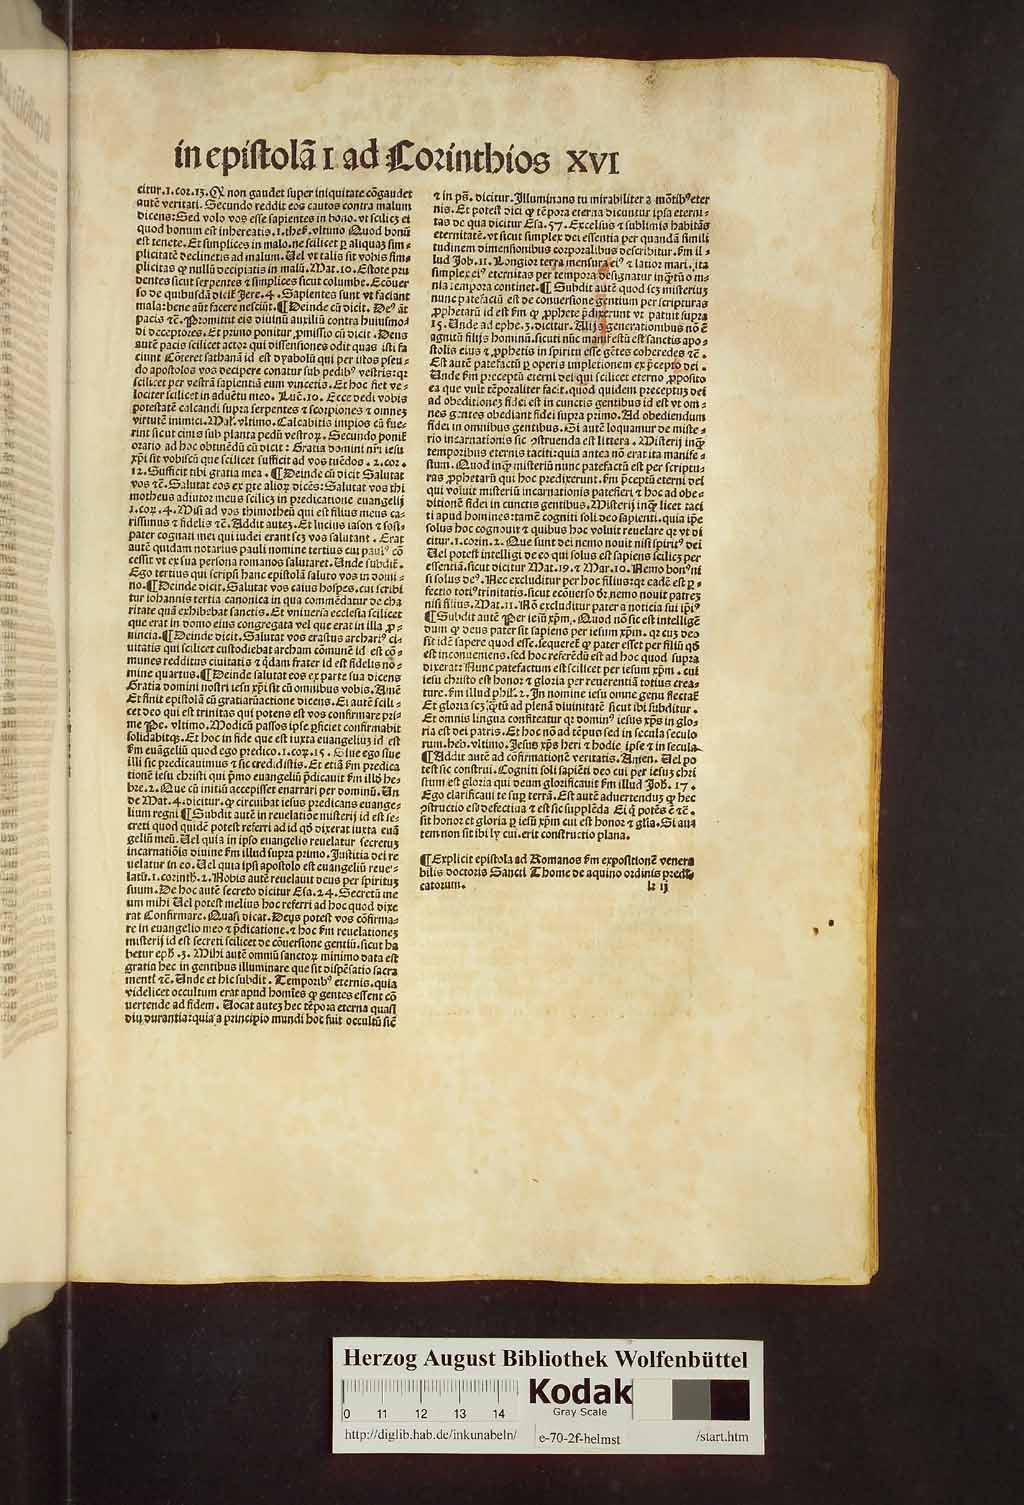 in epistolā I ad Corinthios XVI
citur.1.cor.13. Qɿ non gaudet super iniquitate cōgaudet
autē veritati. Secundo reddit eos cautos contra malum
dicens: Sed volo vos esse sapientes in bono. vt scilicꝫ ei
quod bonum est inhereatis.1.thes̄.vltimo Quod bonū
est tenete. Et simplices in malo. ne scilicet ꝑ aliquaꝫ sim⸗
plicitatē declinetis ad malum. Uel vt talis sit vobis sim⸗
plicitas ꝙ nullū decipiatis in malū. Mat.10. Estote pru
dentes sicut serpentes ⁊ simplices sicut columbe. Ecōuer
so de quibusdā dicit̄ Jere.4. Sapientes sunt vt faciant
mala: bene aūt facere nesciūt. ¶ Deinde cū dicit. Deꝰ āt
pacis ⁊c̄. Promittit eis diuinū auxiliū contra huiusmo⸗
di deceptores. Et primo ponitur ꝓmissio cū dicit. Deus
autē pacis scilicet actor qui dissensiones odit quas isti fa
ciunt Cōteret sathanā id est dyabolū qui per istos pseu⸗
do apostolos vos decipere conatur sub pedibꝰ vestris: qꝛ
scilicet per vestrā sapientiā eum vincetis. Et hoc fiet ve⸗
lociter scilicet in aduētu meo. Luc̄.10. Ecce dedi vobis
potestatē calcandi supra serpentes ⁊ scorpiones ⁊ omneꝫ
virtutē inimici. Mal̄.vltimo. Calcabitis impios cū fue⸗
rint sicut cinis sub planta pedū vestroꝝ. Secundo ponit̄
oratio ad hoc obtinēdū cū dicit: Gratia domini nr̄i iesu
xp̄i sit vobiscū que scilicet sufficit ad vos tuēdos. 2.cor.
12. Sufficit tibi gratia mea. ¶ Deinde cū dicit Salutat
vos ⁊c̄. Salutat eos ex ꝑte alioꝝ dicēs: Salutat vos thi
motheus adiutor meus scilicꝫ in predicatione euangelij
1.coꝝ.4. Misi ad vos thimotheū qui est filius meus ca⸗
rissimus ⁊ fidelis ⁊c̄. Addit auteꝫ. Et lucius iason ⁊ sosi⸗
pater cognati mei qui iudei erant scꝫ vos salutant. Erat
autē quidam notarius pauli nomine tertius cui paulꝰ cō
cessit vt ex sua persona romanos salutaret. Unde subdit̄.
Ego tertius qui scripsi hanc epistolā saluto vos in domi⸗
no. ¶ Deinde dicit. Salutat vos caius hospes. cui scribi
tur iohannis tertia canonica in qua commēdatur de cha
ritate quā exhibebat sanctis. Et vniuersa ecclesia scilicet
que erat in domo eius congregata vel que erat in illa ꝓ⸗
uincia. ¶ Deinde dicit. Salutat vos erastus archariꝰ ci⸗
uitatis qui scilicet custodiebat archam comunē id est cō⸗
munes redditus ciuitatis ⁊ q̄dam frater id est fidelis no⸗
mine quartus. ¶ Deinde salutat eos ex parte sua dicens
Gratia domini nostri iesu xp̄i sit cū omnibus vobis. Amē
Et finit epistolā cū gratiarūactione dicens. Ei autē scili⸗
cet deo qui est trinitas qui potens est vos confirmare pri⸗
me Pe. vltimo. Modicū passos ipse ꝑficiet confirmabit
solidabitqꝫ. Et hoc in fide que est iuxta euangeliuꝫ id est
km̄ euāgeliū quod ego predico.1.coꝝ.15. Siue ego siue
illi sic predicauimus ⁊ sic credidistis. Et etiā km̄ predica
tionē iesu christi qui p̄mo euangeliū p̄dicauit km̄ illd̄ he⸗
bre.2. Que cū initiū accepisset enarrari per dominū. Un
de Mat.4. dicitur. ꝙ circuibat iesus predicans euange⸗
lium regni ¶ Subdit autē in reuelatiōe misterij id est se⸗
creti quod quidē potest referri ad id qd̄ dixerat iuxta euā
geliū meū. Uel quia in ipso euangelio reuelatur secretuꝫ
incarnatiōis diuine km̄ illud supra primo. Justitia dei re
uelatur in eo. Uel quia ipsi apostolo est euangeliū reue⸗
latū.1.corinth̄.2. Nobis autē reuelauit deus per spiritum
suum. De hoc autē secreto dicitur Esa.24. Secretū me
um mihi Uel potest melius hoc referri ad hoc quod dixe
rat Confirmare. Quasi dicat. Deus potest vos cōfirma⸗
re in euangelio meo ⁊ p̄dicatione. ⁊ hoc km̄ reuelationeꝫ
misterij id est secreti scilicet de cōuersione gentiū. sicut ha
betur eph̄.3. Mihi autē omniū sanctoꝝ minimo data est
gratia hec in gentibus illuminare que sit dispēsatio sacra
menti ⁊c̄. Unde et hic subdit. Temporibꝰ eternis. quia
videlicet occultum erat apud homīes ꝙ gentes essent cō
uertende ad fidem. Uocat auteꝫ hec tēpora eterna quasi
diu durantia: quia a principio mundi hoc fuit occultū sic̄
⁊ in ps̄. dicitur. Illuminans tu mirabiliter a mōtibꝰ eter
nis. Et potest dici ꝙ tēpora eterna dicuntur ipsa eterni⸗
tas de qua dicitur Esa.57. Excelsus ⁊ sublimis habitās
eternitatē. vt sicut simplex dei essentia per quandā simili
tudinem dimensionibus corporalibus describitur. km̄ il⸗
lud Job.11. Longior terra mensura eiꝰ ⁊ latior mari. ita
simplex eiꝰ eternitas per tempora designatur inq̄tū o m⸗
nia tempora continet. ¶ Subdit autē quod scꝫ misterium
nunc patefactū est de conuersione gentium per scripturas
ꝓphetarū id est km̄ ꝙ ꝓphete p̄dixerunt vt patuit supra
15. Unde ad ephe.3. dicitur. Alijs generationibus nō ē
agnitū filijs hominū. sicuti nūc manifestū est sanctis apo⸗
stolis eius ⁊ ꝓphetis in spiritu esse gētes coheredes ⁊c̄.
Est autē patefactū ꝑ operis impletionem ex p̄cepto dei.
Unde km̄ preceptū eterni dei qui scilicet eterno ꝓposito
ea que vult tēporaliter facit. quod quidem preceptuꝫ dei
ad obeditioneꝫ fidei est in cunctis gentibus id est vt om⸗
nes gentes obediant fidei supra primo. Ad obediendum
fidei in omnibus gentibus. Si autē loquamur de miste⸗
rio incarnationis sic ꝯstruenda est littera. Misterij inqͣ
temporibus eternis taciti: quia antea nō erat ita manife⸗
stum. Quod inqͣ misteriū nunc patefactū est per scriptu⸗
ras ꝓphetarū qui hoc predixerunt. km̄ p̄ceptū eterni dei
qui voluit misteriū incarnationis patefieri ⁊ hoc ad obe⸗
ditionē fidei in cunctis gentibus. Misterij inqͣ licet taci
ti apud homines: tamē cogniti soli deo sapienti. quia ip̄e
solus hoc cognouit ⁊ quibus hoc voluit reuelare qꝛ vt di
citur.1.corin.2. Que sunt dei nemo nouit nisi spiritꝰ dei
Uel potest intelligi de eo qui solus est sapiens scilicꝫ per
essentiā. sicut dicitur Mat.19. ⁊ Mar.10. Nemo bonꝰ ni
si solus deꝰ. Nec excluditur per hoc filius: qꝛ eadē est ꝑ⸗
fectio totiꝰ trinitatis. sicut ecōuerso dr̄. nemo nouit patreꝫ
nisi filius. Mat.11. Nō excluditur pater a noticia sui ip̄iꝰ
¶ Subdit autē Per iesū xp̄m. Quod nō sic est intelligē
dum ꝙ deus pater sit sapiens per iesum xp̄m. qꝛ cuꝫ deo
sit idē sapere quod esse. sequeret̄ ꝙ pater esset per filiū qd̄
est inconueniens. sed hoc referēdū est ad hoc quod supra
dixerat: Nunc patefactum est scilicet per iesum xp̄m. cui
iesu christo est honor ⁊ gloria per reuerentiā totius crea⸗
ture. km̄ illud phil̄.2. In nomine iesu omne genu flectat̄
Et gloria scꝫ q̄tū ad plenā diuinitatē sicut ibi subditur.
Et omnis lingua confiteatur qꝛ dominꝰ iesus xp̄s in glo⸗
ria est dei patris. Et hoc nō ad tēpus sed in secula seculo
rum. heb̄. vltimo. Jesus xp̄s heri ⁊ hodie ipse ⁊ in secula
¶ Addit autē ad cōfirmationē veritatis. Amen. Uel po
test sic construi. Cogniti soli sapiēti deo cui per iesuꝫ chri
stum est gloria qui deum glorificauit km̄ illud Joh̄.17.
Ego clarificaui te suꝑ terrā. Est autē aduertenduꝫ ꝙ hec
ꝯstructio est defectiua ⁊ est sic supplēda Ei q̄ potēs ē ⁊c̄.
sit honor et gloria ꝑ iesū xp̄m cui est honor ⁊ gl̄ia. Si au⸗
tem non sit ibi ly cui. erit constructio plana.
¶ Explicit epistola ad Romanos km̄ expositionē venera
bilis doctoris Sancti Thome de aquino ordinis predi⸗
catorum.
k ij
Herzog August Bibliothek Wolfenbüttel
Kodak
Gray Scale
0 11 12 13 14
http://diglib.hab.de/inkunabeln/ e-70-2f-helmst /start.htm